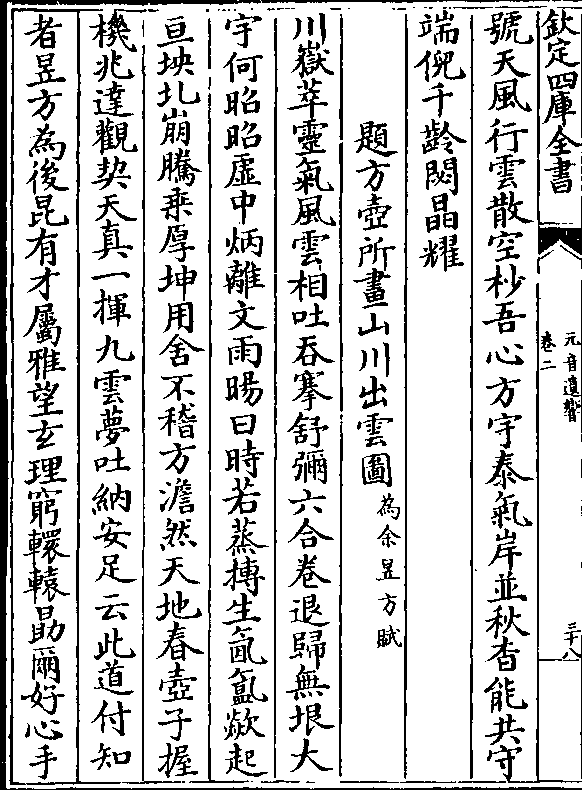 欽定四庫全書
元音遺響
卷二
三十八
號天風行雲散空杪吾心方宇泰氣岸並秋杳能共守
端倪千齡閟晶耀
題方壺所畫山川出雲圖為余昱方賦
川嶽萃靈氣風雲相吐吞搴舒彌六合卷退歸無垠大
宇何昭昭虛中炳離文雨暘曰時若蒸摶生氤氳歘起
亘坱圠崩騰乗厚坤用舍不稽方澹然天地春壺子握
機兆達觀契天真一揮九雲夢吐納安足云此道付知
者昱方為後昆有才屬雅望玄理窮轘轅勗爾好心手